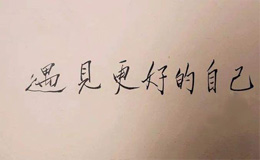 遇見更好的自己